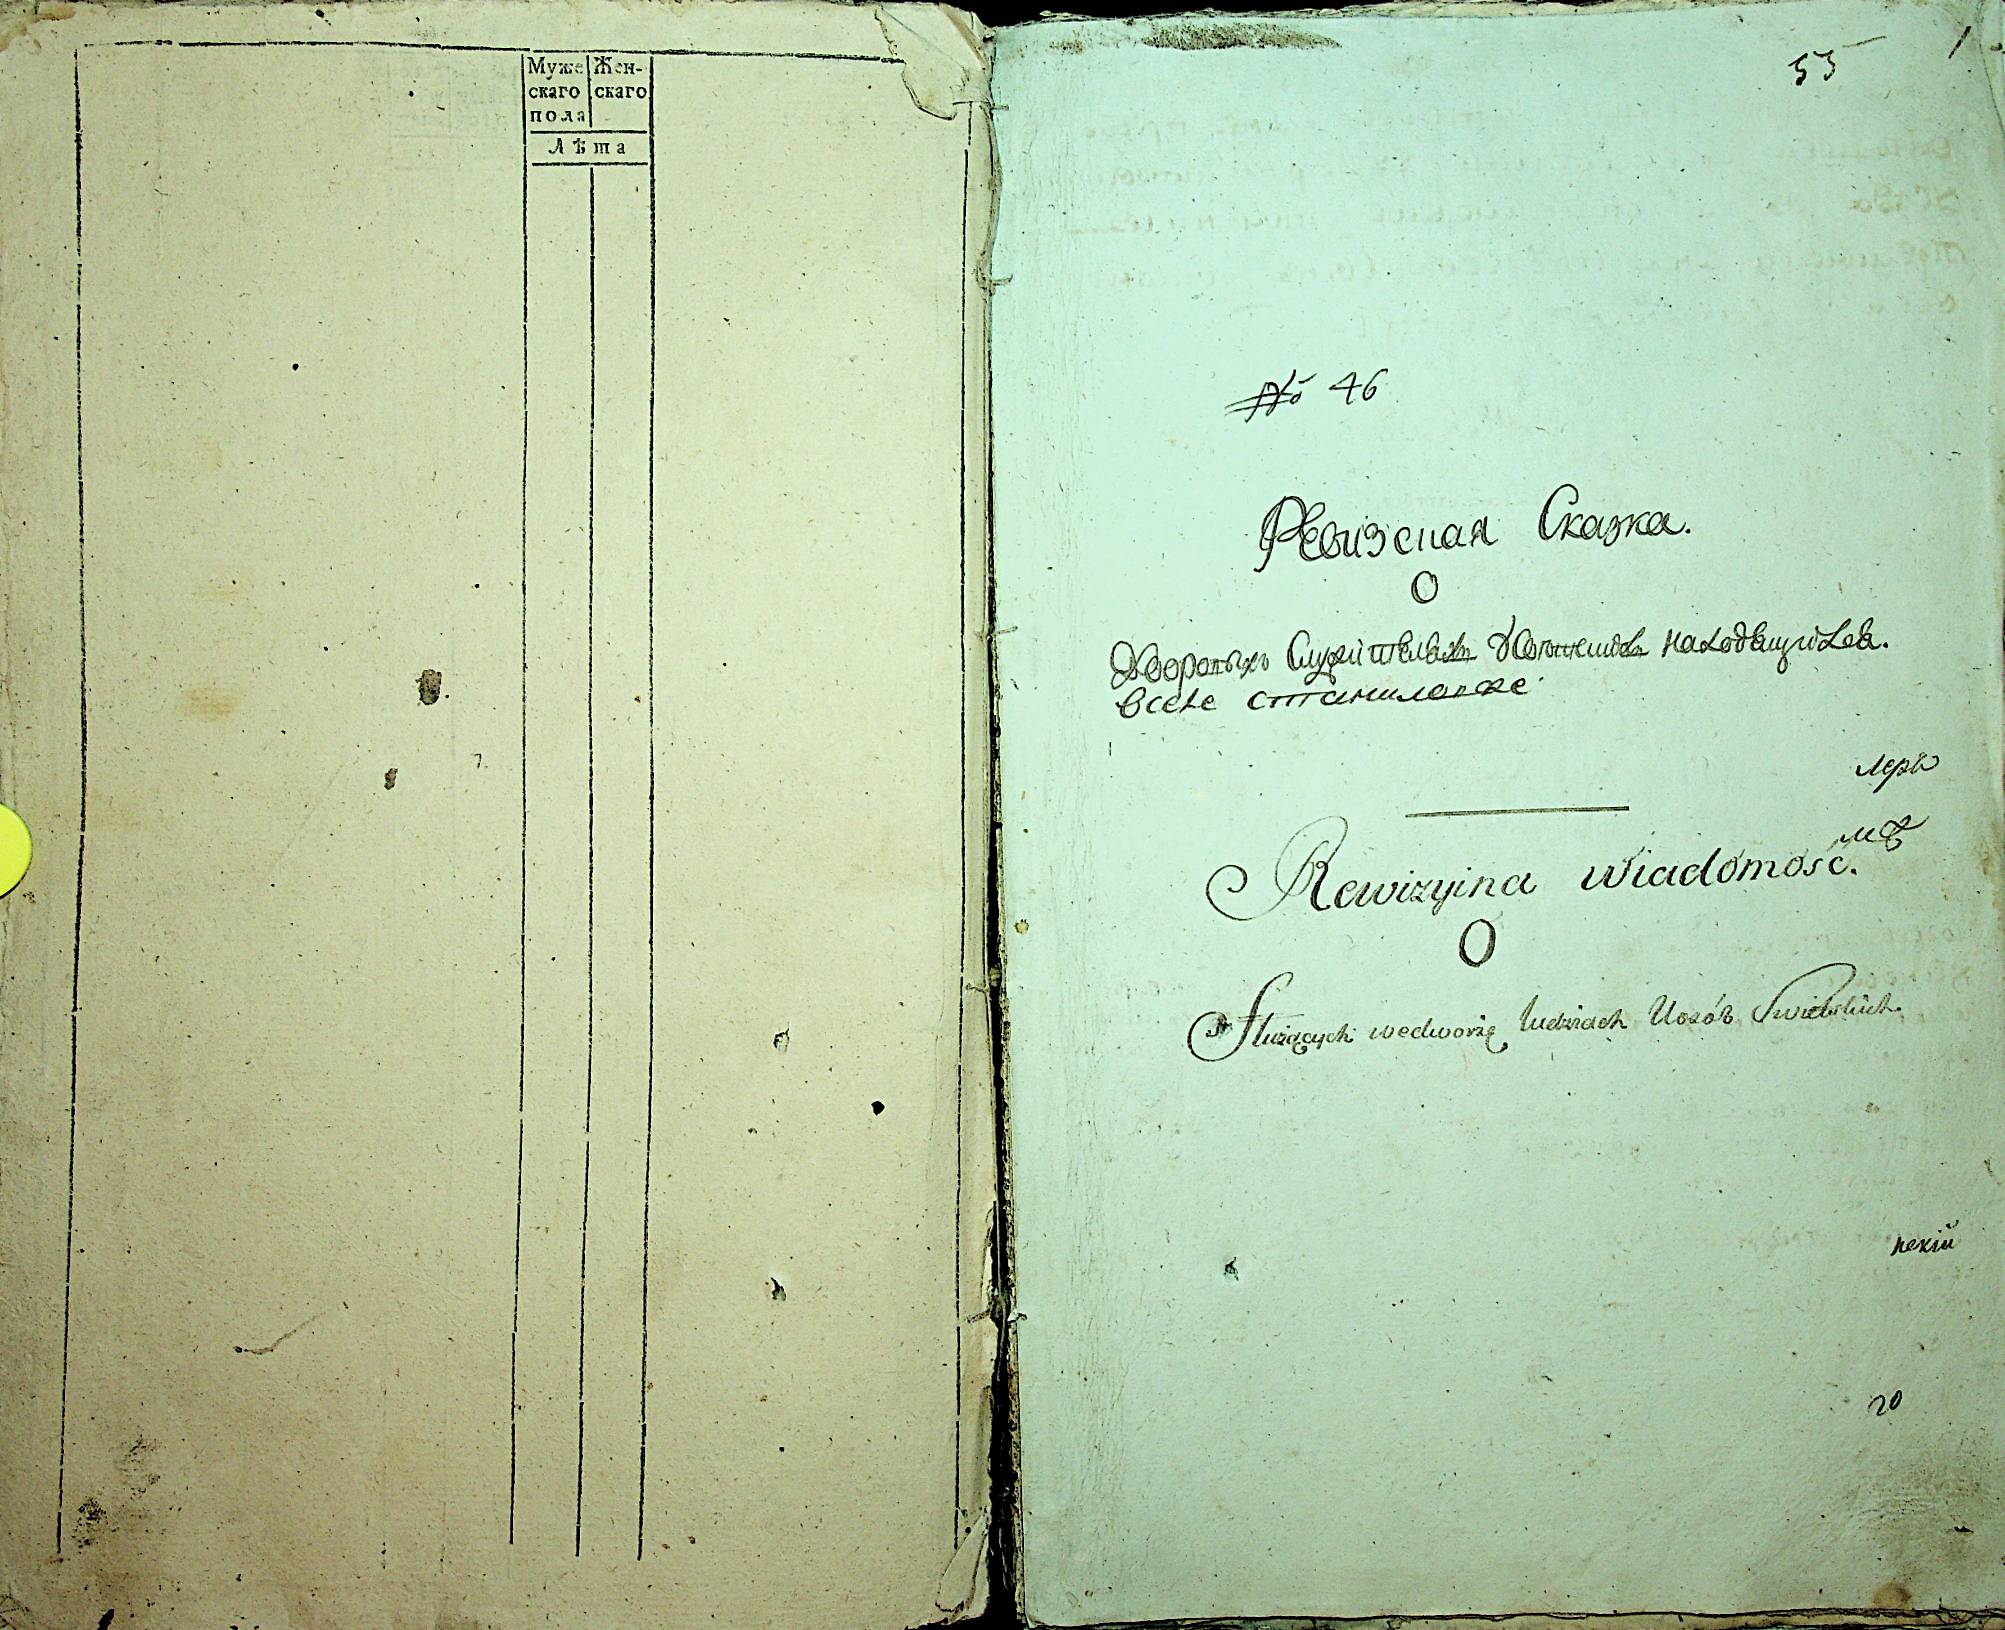 Муже
скаго
пола
Жен-
скаго
Лѣта
55
1
№ 46
Ревизская Сказка.
О
Дворовыхъ Служителяхъ находящихся.
вселе станилавке
леръ
мѣ
Rewizyina wiadomość.
O
Służących wedworze ludziach
некій
го